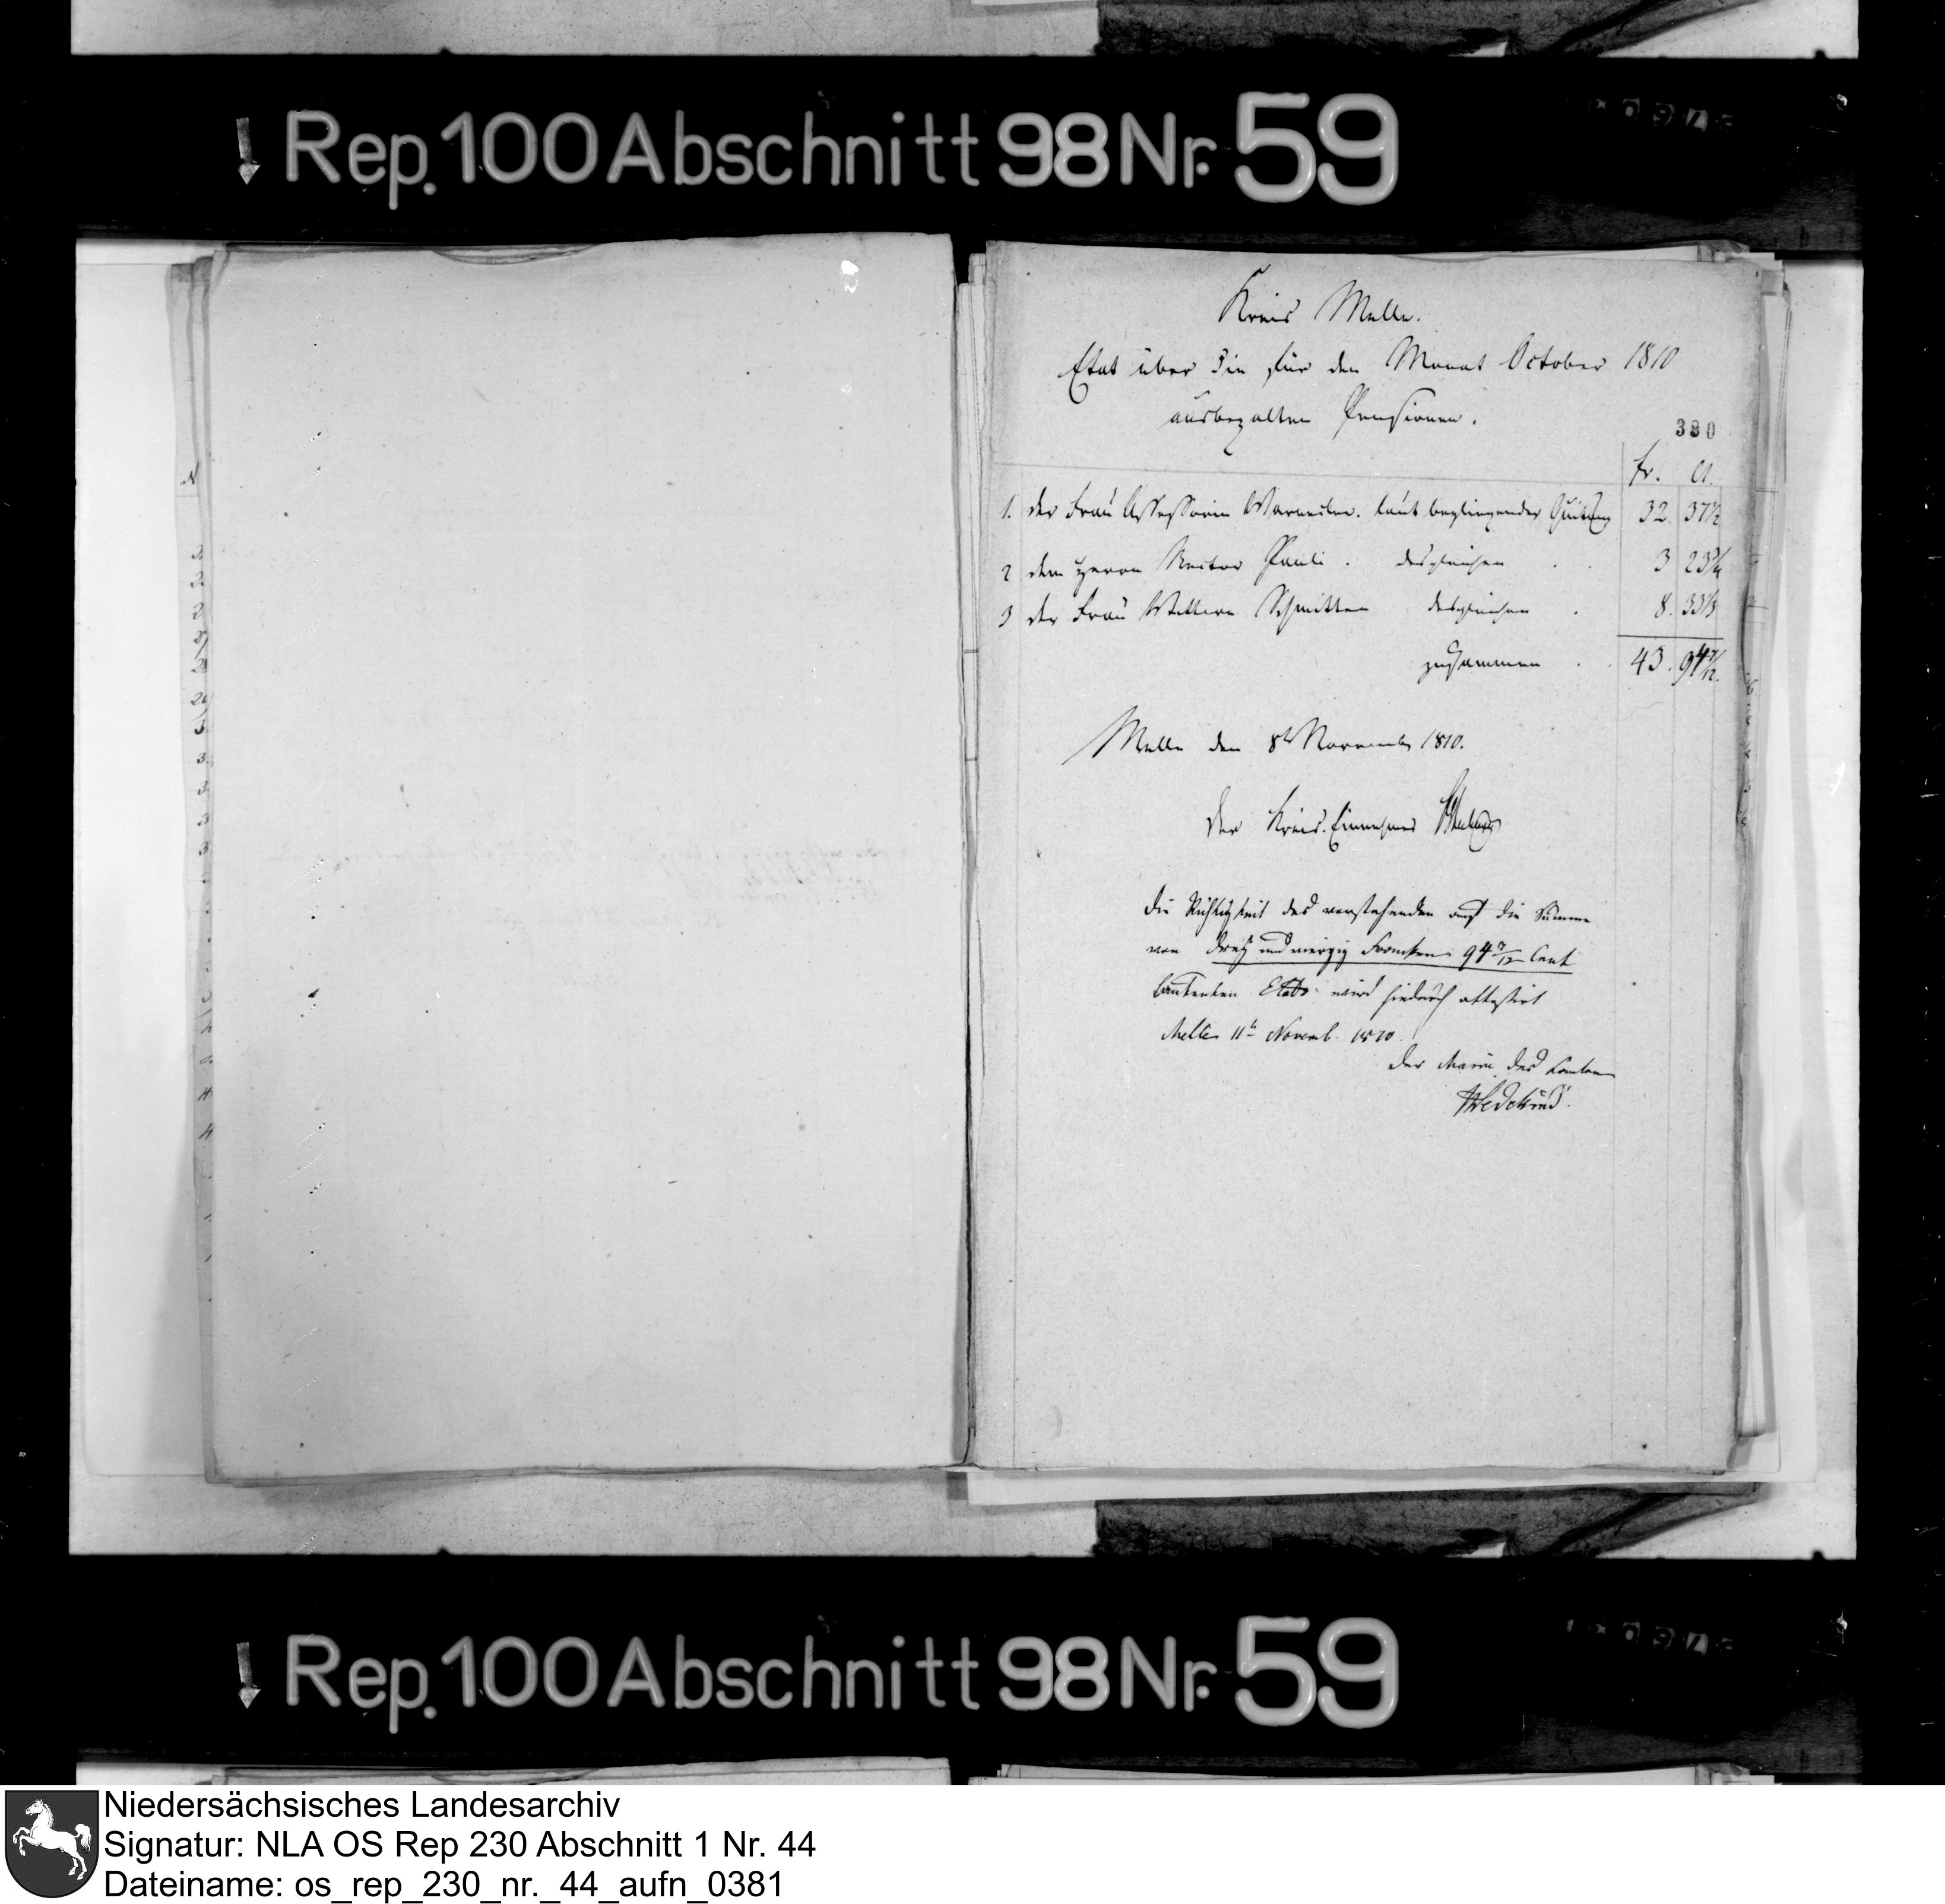 Rep. 100 Abschnitt 98 Nr. 59
Kreis Melle.
Etat über die für den Monat October 1810
ausbezalten Pensionen.
380
fr. Ct.
1. der Frau Assessorin laut beyliegender Quitung 32. 37 1/2
2 dem Herrn Rector Pauli . desgleichen . . 3 23 3/4
3 der Frau Schmitten desgleichen . 8. 33 1/3
zusammen . . 43. 94 7/12.
Melle den 8t Novemb 1810.
Der Kreis-Einnehmer
Die Richtigkeit des vorstehenden auf die Summe
von drey und vierzig Franken 94 7/12 Cent
lautenden Etats wird hiedurch attestirt
Melle 11t Novemb. 1810
Der Maire des Canton
Wedekind.
Rep. 100 Abschnitt 98 Nr. 59
Niedersächsisches Landesarchiv
Signatur: NLA OS Rep 230 Abschnitt 1 Nr. 44
Dateiname: os_rep_230_nr._44_aufn_0381